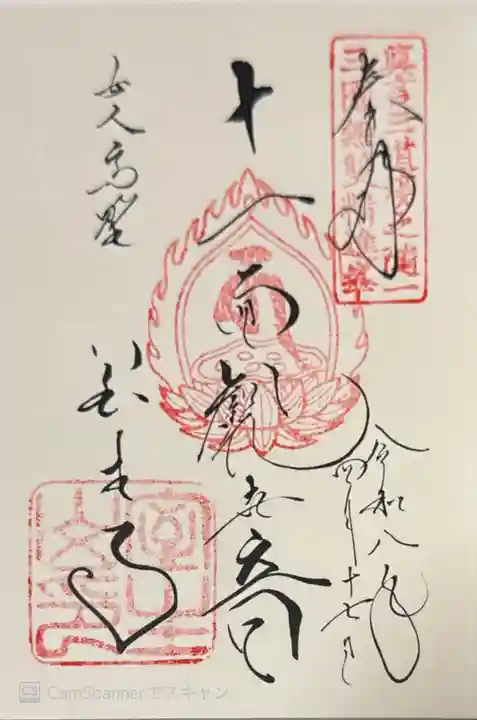 奉拝
令和八年
四月十七日
十一面
観世音
女人高野
室生寺
CamScannerでスキャン